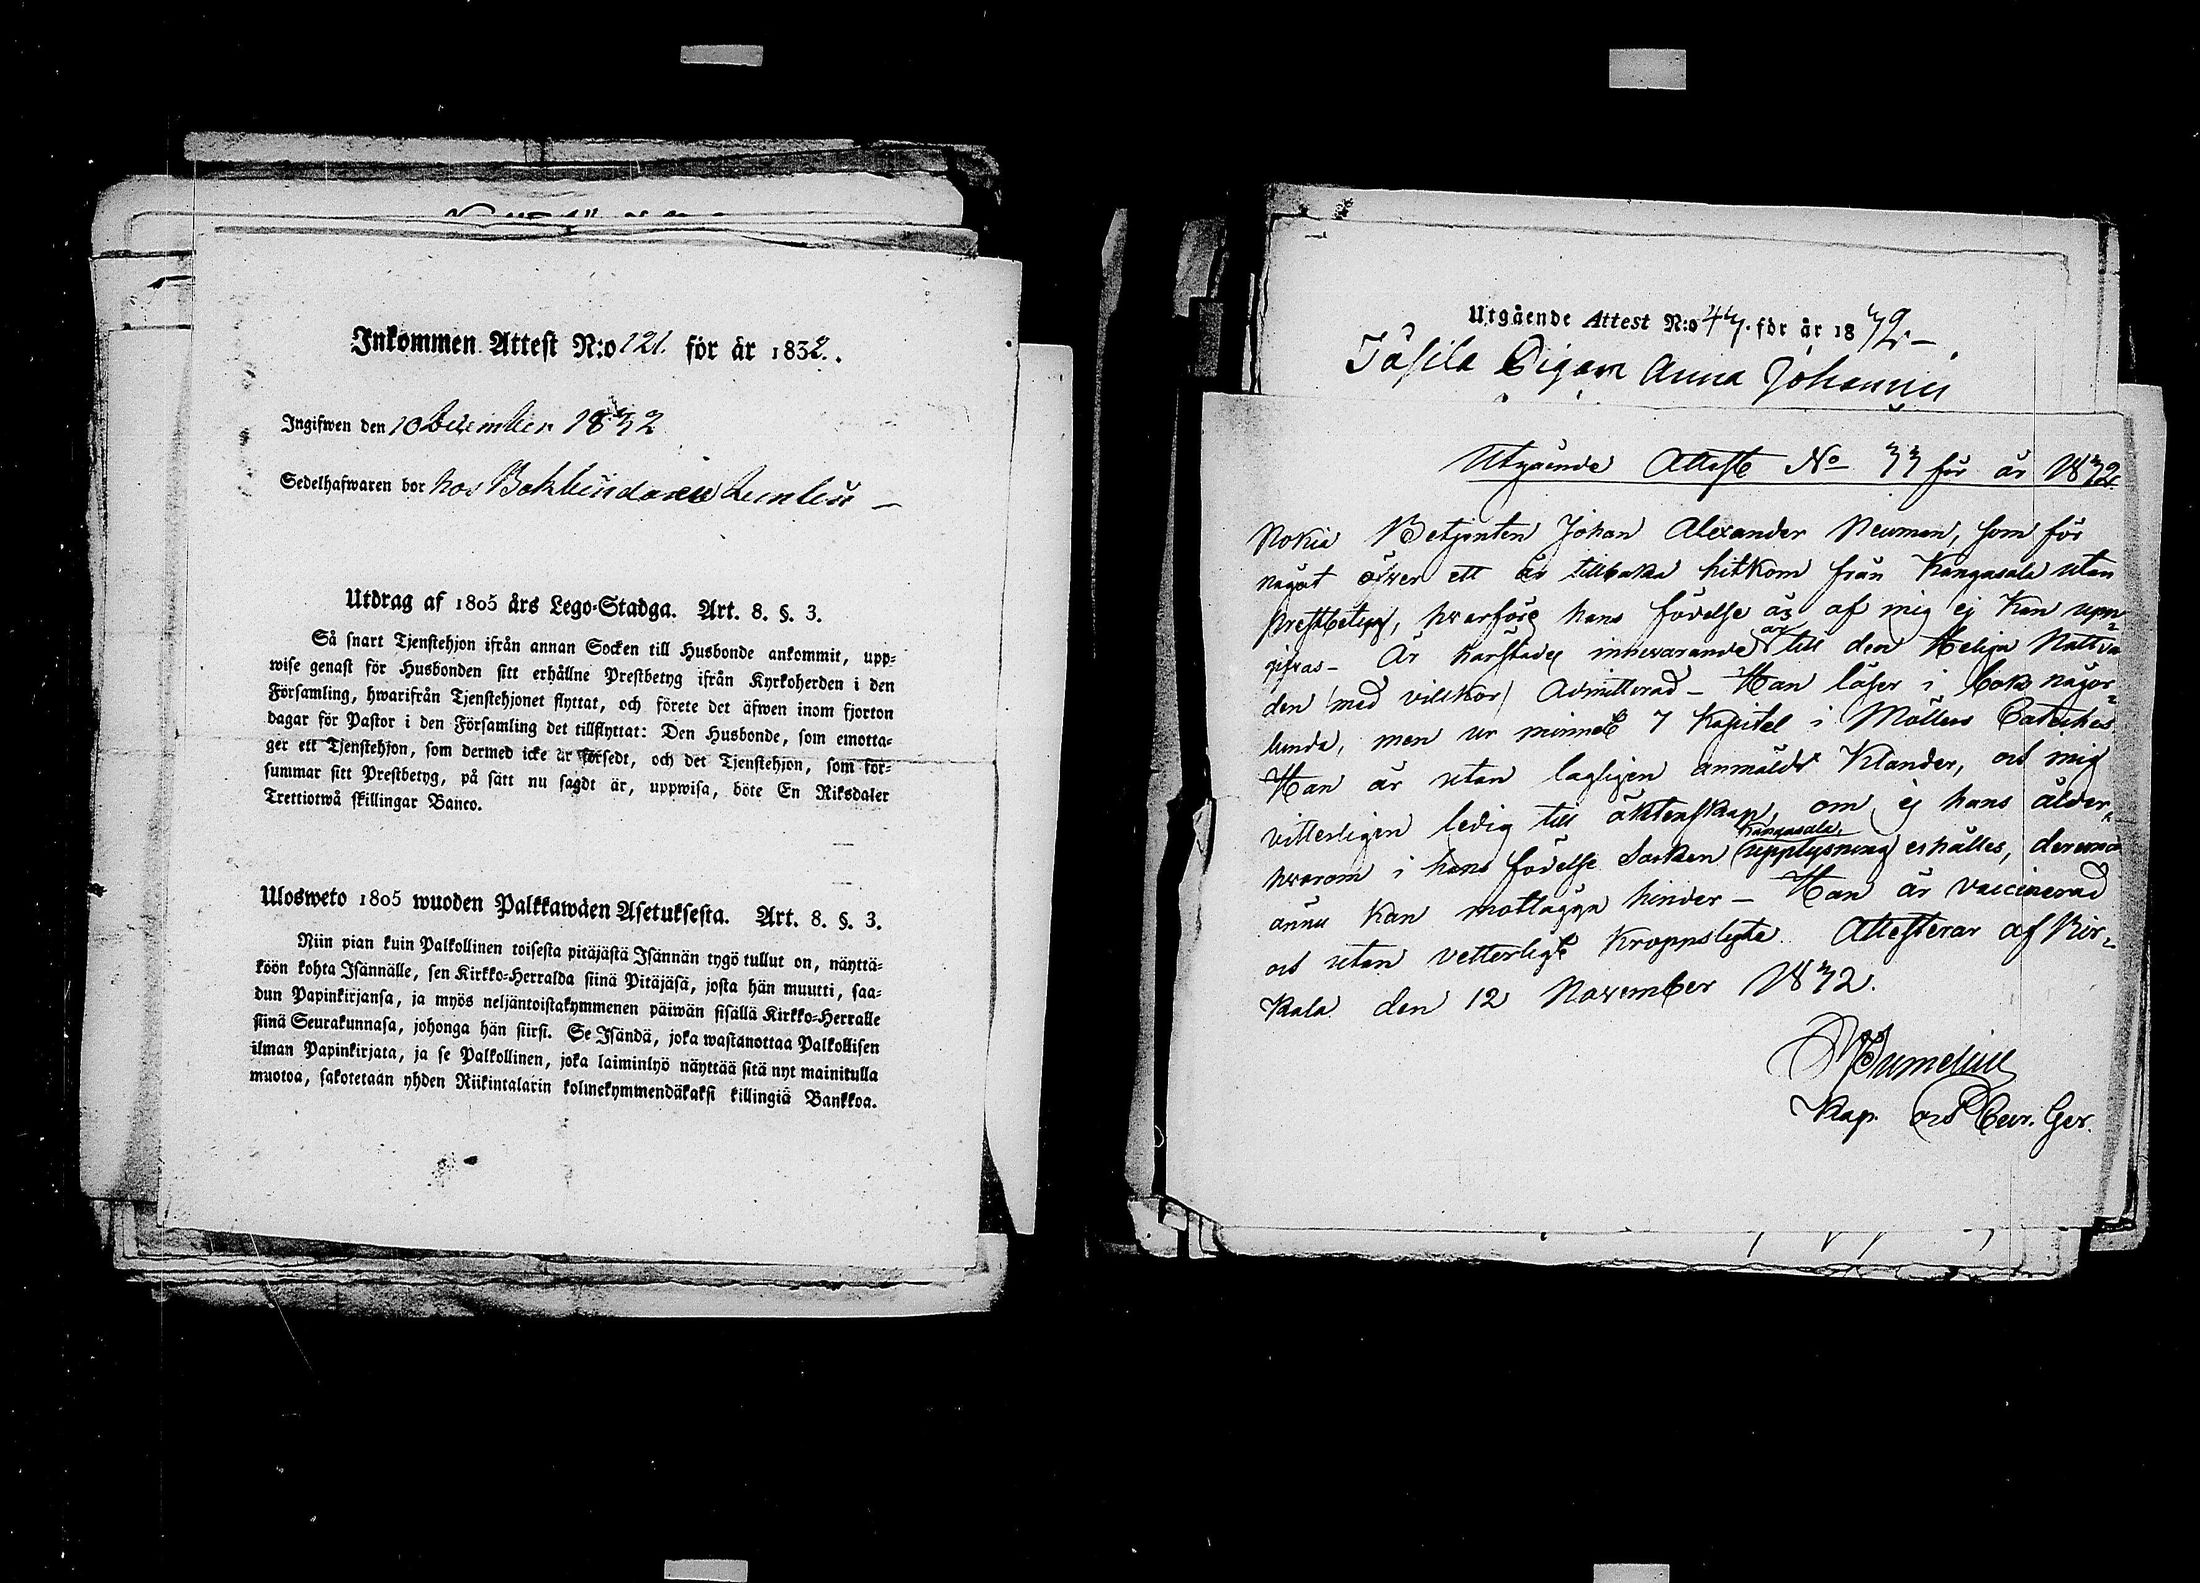 Inkommen Attest N:o 121. för år 1832.
Ingifwen den 10 December 1832
Sedelhafwaren bor hos Bokbindaren
Utdrag af 1805 års Lego-Stadga. Art. 8. §. 3.
Så snart Tjenstehjon ifrån annan Socken till Husbonde ankommit, upp-
wise genast för Husbonden sitt erhållne Prestbetyg ifrån Kyrkoherden i den
Församling, hwarifrån Tjenstehjonet flyttat, och förete det äfwen inom fjorton
dagar för Pastor i den Församling det tillflyttat: Den Husbonde, som emotta-
ger ett Tjenstehjon, som dermed icke är försedt, och det Tjenstehjon, som för-
summar sitt Prestbetyg, på sätt nu sagdt är, uppwisa, böte En Riksdaler
Trettiotwå skillingar Banco.
Ulosweto 1805 wuoden Palkkawäen Asetuksesta. Art. 8. §. 3.
Niin pian kuin Palkollinen toisesta pitäjästä Isännän tygö tullut on, näyttä-
köön kohta Isännälle, sen Kirkko-Herralda siinä Pitäjäsä, josta hän muutti, saa-
dun Papinkirjansa, ja myös neljäntoistakymmenen päiwän sisällä Kirkko-Herralle
siinä Seurakunnasa, johonga hän siirsi. Se Isändä, joka wastanottaa Palkollisen
ilman Papinkirjata, ja se Palkollinen, joka laiminlyö näyttää sitä nyt mainitulla
muotoa, sakotetaan yhden Riikintalarin kolmekymmendäkaksi killingiä Bankkoa.
Utgående Attest N:o 47. för år 1872
Pigan Anna Johanna
Utgående Attest No 33 för år 1832.
Nokia Betjenten Johan Alexander Neuman, som för
något öfver ett år tillbaka hitkom från Kangasala utan
prestbetyg, hvarföre hans födelse år af mig ej kan upp-
gifvas - Är karstadd innevarande år till den Heliga Nattva
den (med vilkor) Admitterad - Han läser i bok någor-
lunda, men ur minnet 7 Kapitel i Möllers Cateches
Han är utan lagligen anmäldt Klander, och mig
vitterligen ledig till äktenskap, om ej hans ålder,
hvarom i hans födelse Socken Kangasala upplysning erhålles, deremot
ännu kan mottägga hinder - Han är vaccinerad
och utan vetterligt kroppslyte. Attesterar af Bir-
kala den 12 November 1832.
Kap. och Ger.